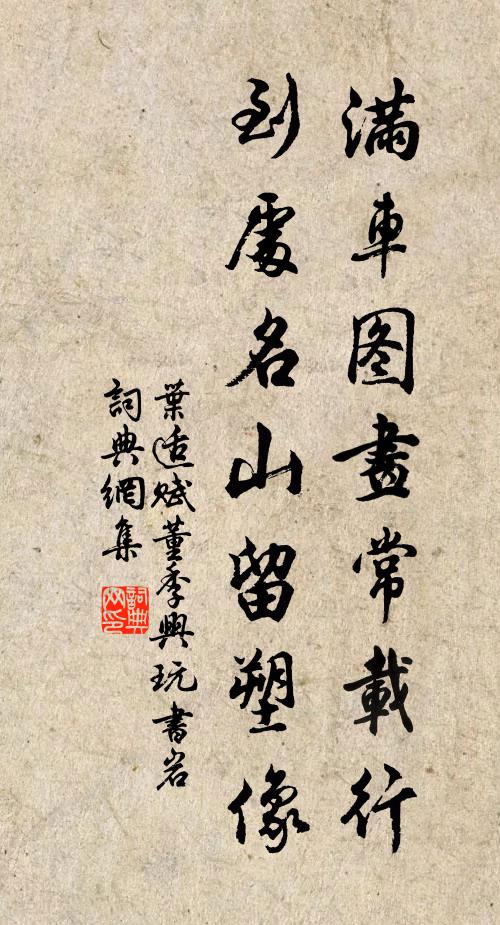 满車图畫常載行
到處名山留塑像
葉适賦董季興玩書岩
詞典網集
詞典网印